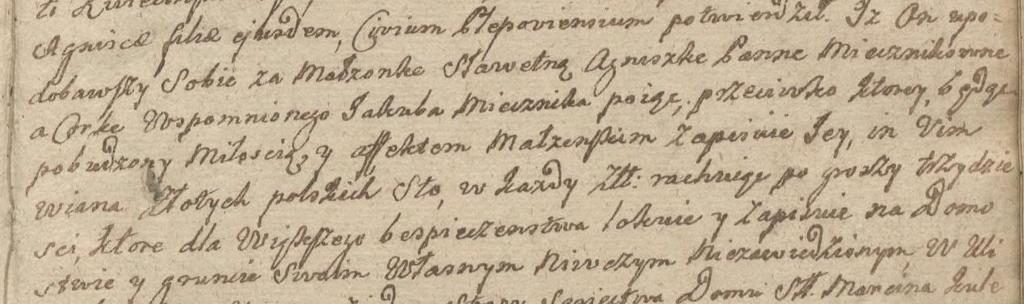 Agniscæ filiæ ejusdem, Civium Rlepoviensium potwierdził. Iz On upo-
dobawszy Sobie za Małzonke Sławetną Agnieszke Panne Miecznikowne
a Corke Wspomnionego Jakuba Miecznika poięę, przeciwko ktorey, będąc
pobudzony Miłoscią, y affektem Małzenskim Zapisuie Jey, in Vim
Wiana Złotych polskich Sto, w kazdy Zll: rachuięc po groszy trzydzie
sci, ktore dla Większego bespieczenstwa lokuie y Zapisuie na Domo
stwie y gruncie Swoim Własnym Niwczym Niezawiedzionym w Uli
Domu Sł. Marcina Kule